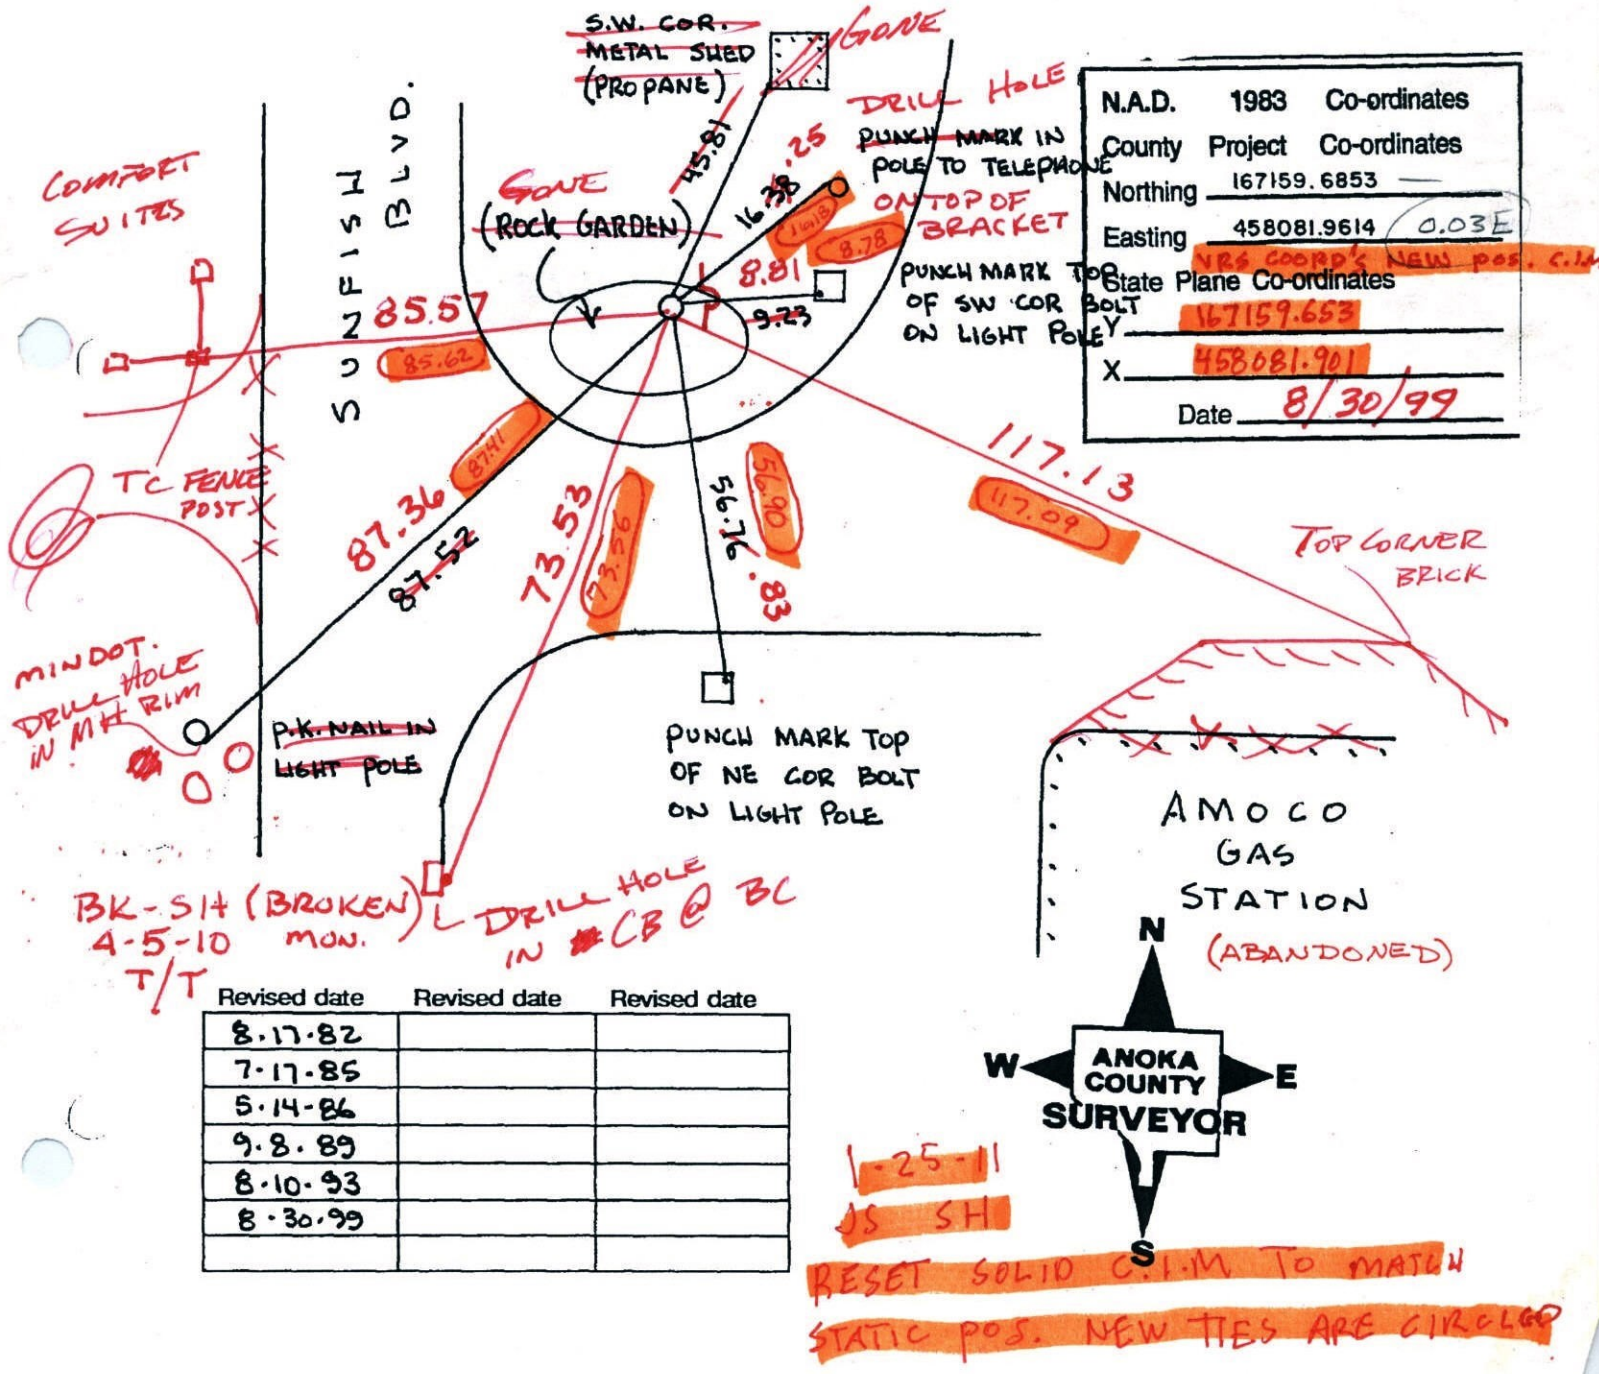 S.W. COR.
METAL SHED
(PROPANE)
GONE
45.81
DRILL HOLE
PUNCH MARK IN
POLE TO TELEPHONE
ON TOP OF
BRACKET
16.38
.25
16.18
8.78
GONE
(ROCK GARDEN)
8.81
9.23
PUNCH MARK TOP
OF SW COR BOLT
ON LIGHT POLE
N.A.D. 1983 Co-ordinates
County Project Co-ordinates
Northing 167159.6853
Easting 458081.9614 0.03E
VRS COORD'S NEW POS. C.I.M
State Plane Co-ordinates
Y 167159.653
X 458081.901
Date 8/30/99
COMFORT
SUITES
SUNFISH
BLVD.
85.57
85.62
TC FENCE
POST
87.41
87.36
87.52
73.53
73.56
56.76
.83
56.90
117.13
117.09
TOP CORNER
BRICK
MINDOT.
DRILL HOLE
IN MH RIM
P.K. NAIL IN
LIGHT POLE
PUNCH MARK TOP
OF NE COR BOLT
ON LIGHT POLE
AMOCO
GAS
STATION
(ABANDONED)
BK-SH (BROKEN)
4-5-10 MON.
T/T
DRILL HOLE
IN CB @ BC
Revised date Revised date Revised date
8.17.82
7.17.85
5.14-86
9.8.89
8.10.93
8.30.99
N
W E
ANOKA
COUNTY
SURVEYOR
S
1-25-11
JS SH
RESET SOLID C.I.M TO MATCH
STATIC POS. NEW TIES ARE CIRCLED